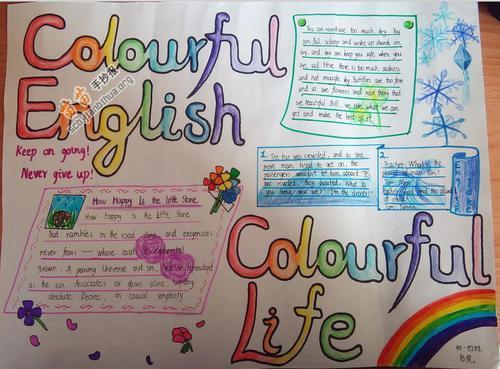 Colourful
English
Keep on going!
Never give up!
You can never have too much sky. You
can fall asleep and wake up drunk on
sky, and sky can keep you safe when you
are sad. Here there is too much sadness
and not enough sky. Butterflies are too few
and so are flowers and most thing that
are beautiful. Still, we take what we can
get and make the best of it.
1. The bus was crowded, and as one
more man tried to get on, the
passengers wouldn't let him aboard. It's
too crowded, they shouted. Who do
you think you are? I'm the driver!
2.
Teacher: What's the
plural of man, Tom?
Tom: Men.
the plural
of child
Tom: Twins.
How Happy Is the Little Stone
How happy is the little Stone
That rambles in the road alone and exigencies
never fears — whose coat of elemental
Brown. A passing Universe put on,
as the sun. Associates or glows alone,
absolute Decree, in casual simplicity.
Colourful
Life
手抄报
.org